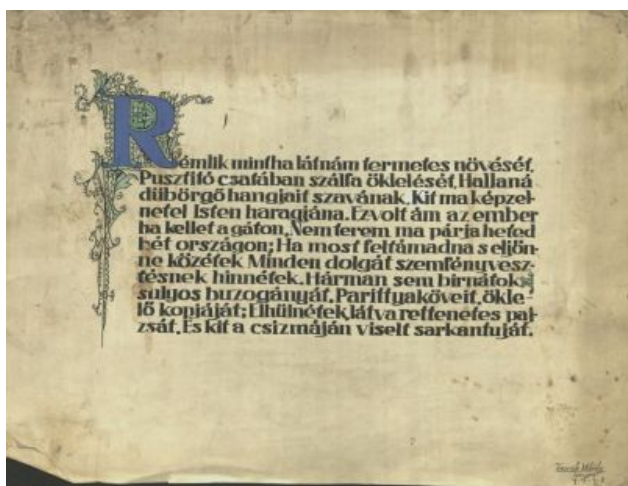 Rémlik mintha látnám termetes növését,
Pusztító csatában szálfa öklelését, Hallaná
dübörgő hangjait szavának, Kit ma képzel-
netel Isten haragjána. Ezvolt ám az ember
ha kellet a gáton, Nem terem ma párja heted
hét országon; Ha most feltámadna s eljön-
ne közétek Minden dolgát szemfényvesz-
tésnek hinnétek. Hárman sem birnátok
sulyos buzogányát, Parittyaköveit, ökle-
lő kopiáját; Elhülnétek, látva rettenetes paj-
zsát, És kit a csizmáján viselt sarkantuját.